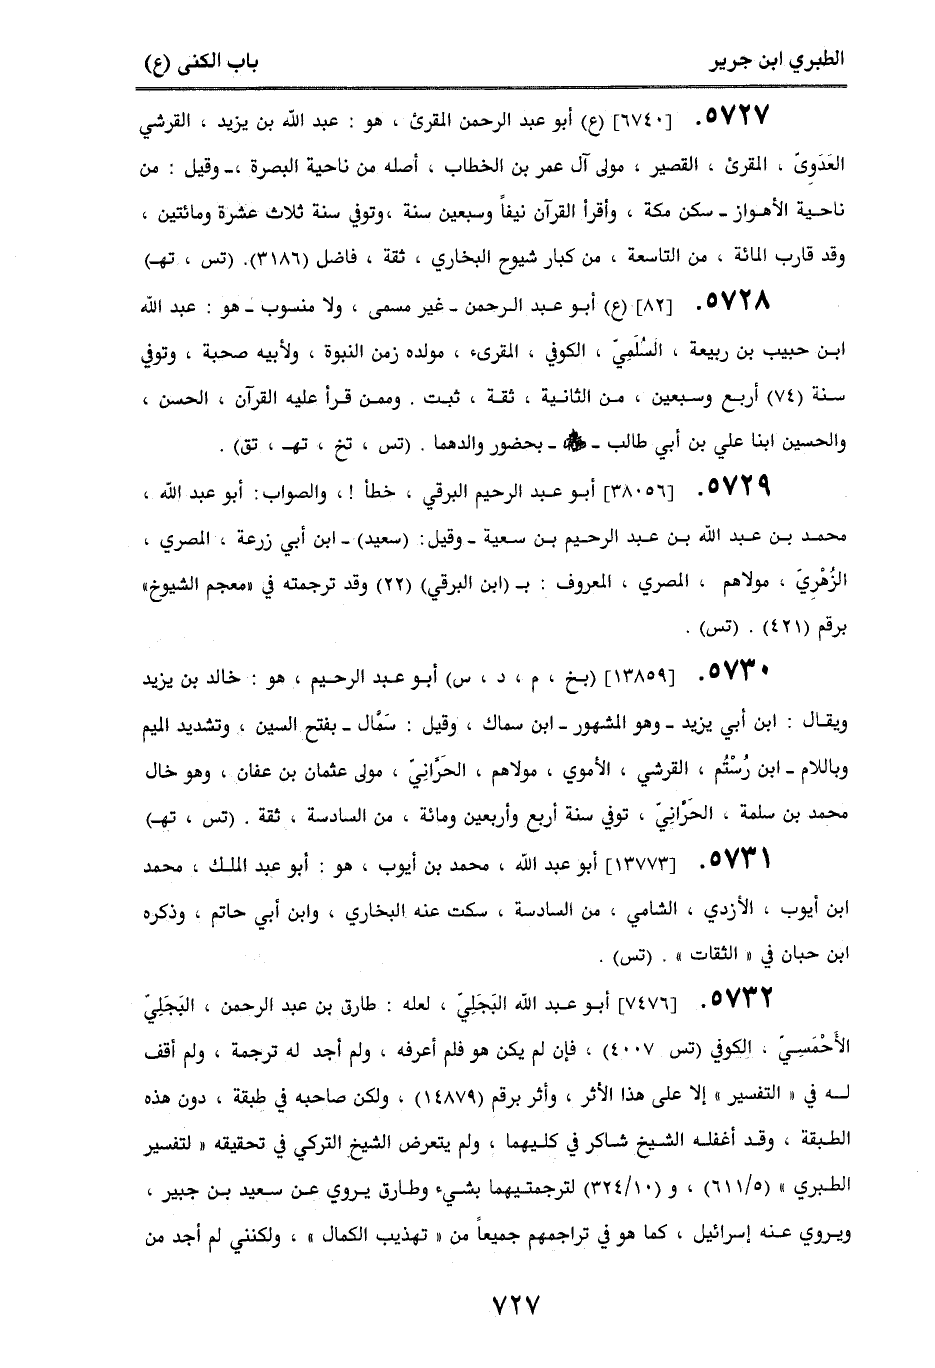 الطبري ابن جرير
باب الكنى (ع)
٥٧٢٧. [٦٧٤٠] (ع) أبو عبد الرحمن المقرئ ، هو : عبد الله بن يزيد ، القرشي
العَدَوِيّ ، المقرئ ، القصير ، مولى آل عمر بن الخطاب ، أصله من ناحية البصرة ،ـ وقيل : من
ناحية الأهواز ـ سكن مكة ، وأقرأ القرآن نيفاً وسبعين سنة ،وتوفي سنة ثلاث عشرة ومائتين ،
وقد قارب المائة ، من التاسعة ، من كبار شيوخ البخاري ، ثقة ، فاضل (٣١٨٦). (تس ، تهـ)
٥٧٢٨. [٨٢] (ع) أبو عبد الرحمن ـ غير مسمى ، ولا منسوب ـ هو : عبد الله
ابن حبيب بن ربيعة ، السُلَمِيّ ، الكوفي ، المقرىء ، مولده زمن النبوة ، ولأبيه صحبة ، وتوفي
سنة (٧٤) أربع وسبعين ، من الثانية ، ثقة ، ثبت . وممن قرأ عليه القرآن ، الحسن ،
والحسين ابنا علي بن أبي طالب ـ ـ بحضور والدهما . (تس ، تخ ، تهـ ، تق) .
٥٧٢٩. [٣٨٠٥٦] أبو عبد الرحيم البرقي ، خطأ !، والصواب: أبو عبد الله ،
محمد بن عبد الله بن عبد الرحيم بن سعية ـ وقيل: (سعيد) ـ ابن أبي زرعة ، المصري ،
الزُهْرِيّ ، مولاهم ، المصري ، المعروف : بـ (ابن البرقي) (٢٢) وقد ترجمته في «معجم الشيوخ»
برقم (٤٢١) . (تس) .
٥٧٣٠. [١٣٨٥٩] (بخ ، م ، د ، س) أبو عبد الرحيم ، هو : خالد بن يزيد
ويقال : ابن أبي يزيد ـ وهو المشهور ـ ابن سماك ، وقيل : سَمَّال ـ بفتح السين ، وتشديد الميم
وباللام ـ ابن رُسْتُم ، القرشي ، الأموي ، مولاهم ، الحَرَّانِيّ ، مولى عثمان بن عفان ، وهو خال
محمد بن سلمة ، الحَرَّانِيّ ، توفي سنة أربع وأربعين ومائة ، من السادسة ، ثقة . (تس ، تهـ)
٥٧٣١. [١٣٧٧٣] أبو عبد الله ، محمد بن أيوب ، هو : أبو عبد الملك ، محمد
ابن أيوب ، الأزدي ، الشامي ، من السادسة ، سكت عنه البخاري ، وابن أبي حاتم ، وذكره
ابن حبان في « الثقات » . (تس) .
٥٧٣٢. [٧٤٧٦] أبو عبد الله البَجَلِيّ ، لعله : طارق بن عبد الرحمن ، البَجَلِيّ
الأَحْمَسِيّ ، الكوفي (تس ٤٠٠٧) ، فإن لم يكن هو فلم أعرفه ، ولم أجد له ترجمة ، ولم أقف
له في « التفسير » إلا على هذا الأثر ، وأثر برقم (١٤٨٧٩) ، ولكن صاحبه في طبقة ، دون هذه
الطبقة ، وقد أغفله الشيخ شاكر في كليهما ، ولم يتعرض الشيخ التركي في تحقيقه « لتفسير
الطبري » (٦١١/٥) ، و (٣٢٤/١٠) لترجمتيهما بشيء وطارق يروي عن سعيد بن جبير ،
ويروي عنه إسرائيل ، كما هو في تراجمهم جميعاً من « تهذيب الكمال » ، ولكنني لم أجد من
٧٢٧